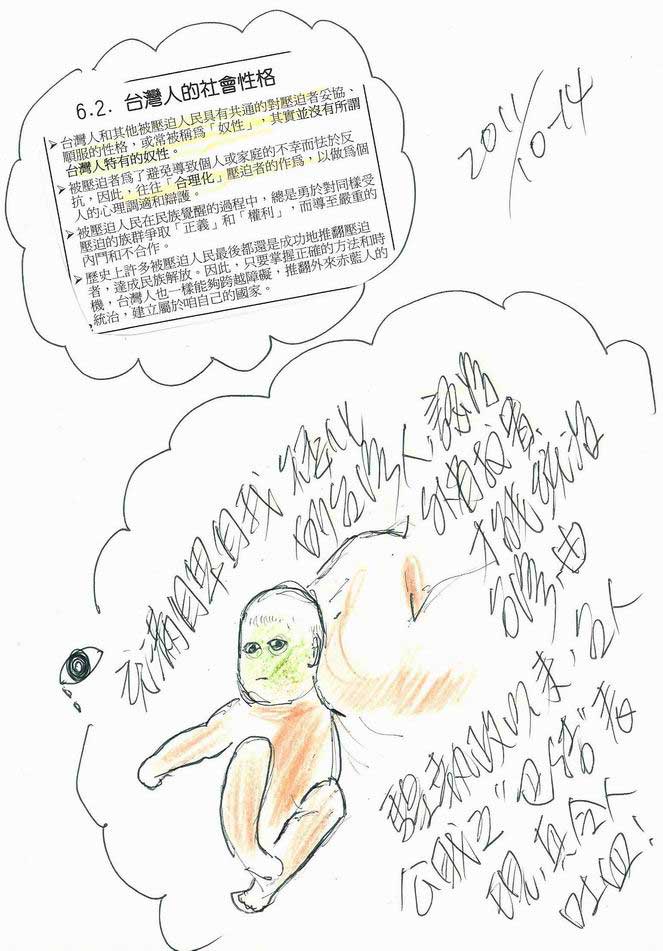 2011/10-14
6.2. 台灣人的社會性格
➤台灣人和其他被壓迫人民具有共通的對壓迫者妥協、
順服的性格，或常被稱為「奴性」，其實並沒有所謂
台灣人特有的奴性。
➤被壓迫者為了避免導致個人或家庭的不幸而怯於反
抗，因此，往往「合理化」壓迫者的作為，以做為個
人的心理調適和辯護。
➤被壓迫人民在民族覺醒的過程中，總是勇於對同樣受
壓迫的族群爭取「正義」和「權利」，而導至嚴重的
內鬥和不合作。
➤歷史上許多被壓迫人民最後都還是成功地推翻壓迫
者，達成民族解放。因此，只要掌握正確的方法和時
機，台灣人也一樣能夠跨越障礙，推翻外來赤藍人的
統治，建立屬於咱自己的國家。
充滿自卑自我矮化
的台灣人，認為
外省
才能統治
台灣由
執政以來，
"巴結"表
現，真令人
吐血！